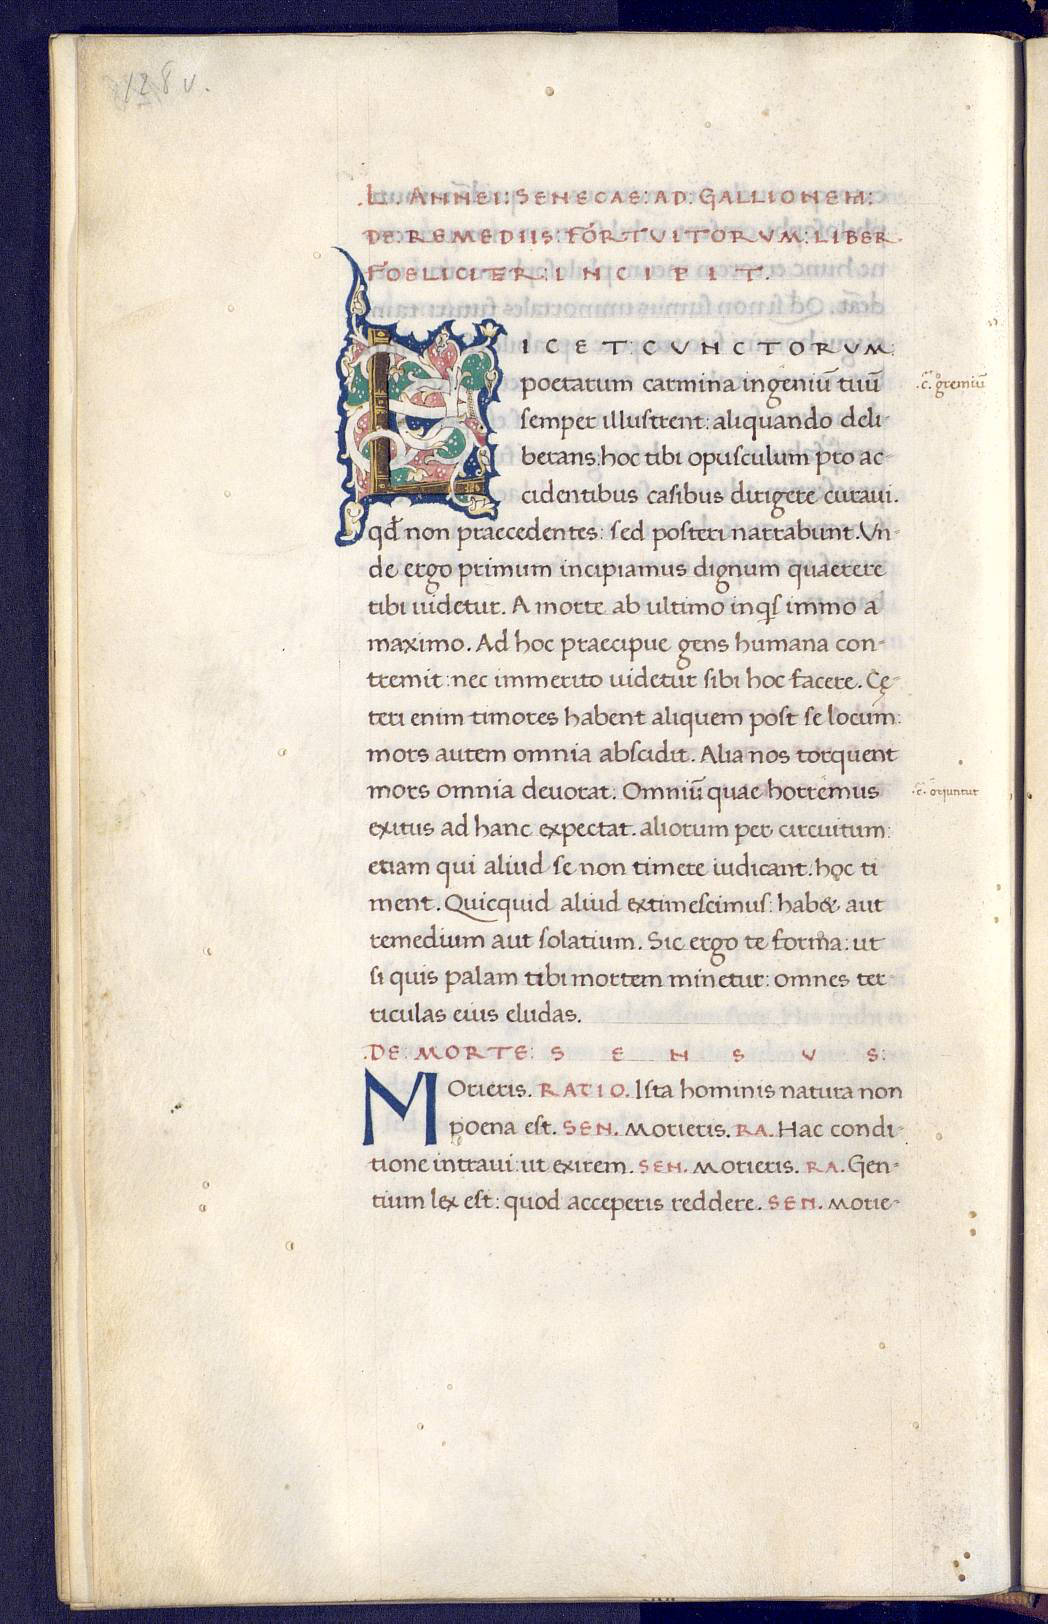 128 v.
.L. ANNEI: SENECAE: AD: GALLIONEM:
DE: REMEDIIS: FORTUITORVM: LIBER
FOELICITER: INCIPIT.
LICET: CVNCTORVM
poetarum carmina ingeniū tuū
.c̄. gremiū
semper illustrent: aliquando deli-
berans: hoc tibi opusculum pro ac-
cidentibus casibus dirigere curaui.
qd̄ non praecedentes: sed posteri narrabunt. Vn-
de ergo primum incipiamus dignum quaerere
tibi uidetur. A morte ab ultimo inqs immo a
maximo. Ad hoc praecipue gens humana con-
tremit: nec immerito uidetur sibi hoc facere. Cę-
teri enim timores habent aliquem post se locum:
mors autem omnia abscidit. Alia nos torquent
mors omnia deuorat. Omniū quae horremus
.c̄. oriuntur
exitus ad hanc expectat. aliorum per circuitum:
etiam qui aliud se non timere iudicant: hoc ti
ment. Quicquid aliud extimescimus: hab& aut
remedium aut solatium. Sic ergo te forma: ut
si quis palam tibi mortem minetur: omnes ter-
riculas eius eludas.
.DE: MORTE: SENSVS:
MOrieris. RATIO. Ista hominis natura non
poena est. SEN. Morieris. RA. Hac condi-
tione intraui: ut exirem. SEN. Morieris. RA. Gen-
tium lex est: quod acceperis reddere. SEN. Morie-